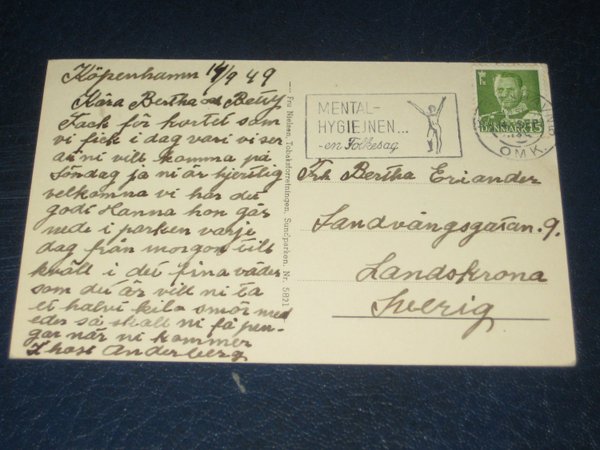 Köpenhamn 14/9 49
Kära Bertha och Betty
Tack för kortet som
vi fick i dag vari vi ser
att ni vill komma på
Söndag ja ni är hjertlig
velkomna vi har det
godt Hanna hon går
nede i parken varje
dag från morgon till
kväll i det fina väder
som du är vill ni ta
et halvt kilo smör med
eder så skall ni få pen-
gar när ni kommer
Anderberg
Fru Nielsen, Tobaksforretningen, Sundparken. Nr. 5821
MENTAL-
HYGIEJNEN...
-en Folkesag
DANMARK 15
OMK.
Frk Bertha Eriander
Landvångsgatan. 9.
Landskrona
Sverig